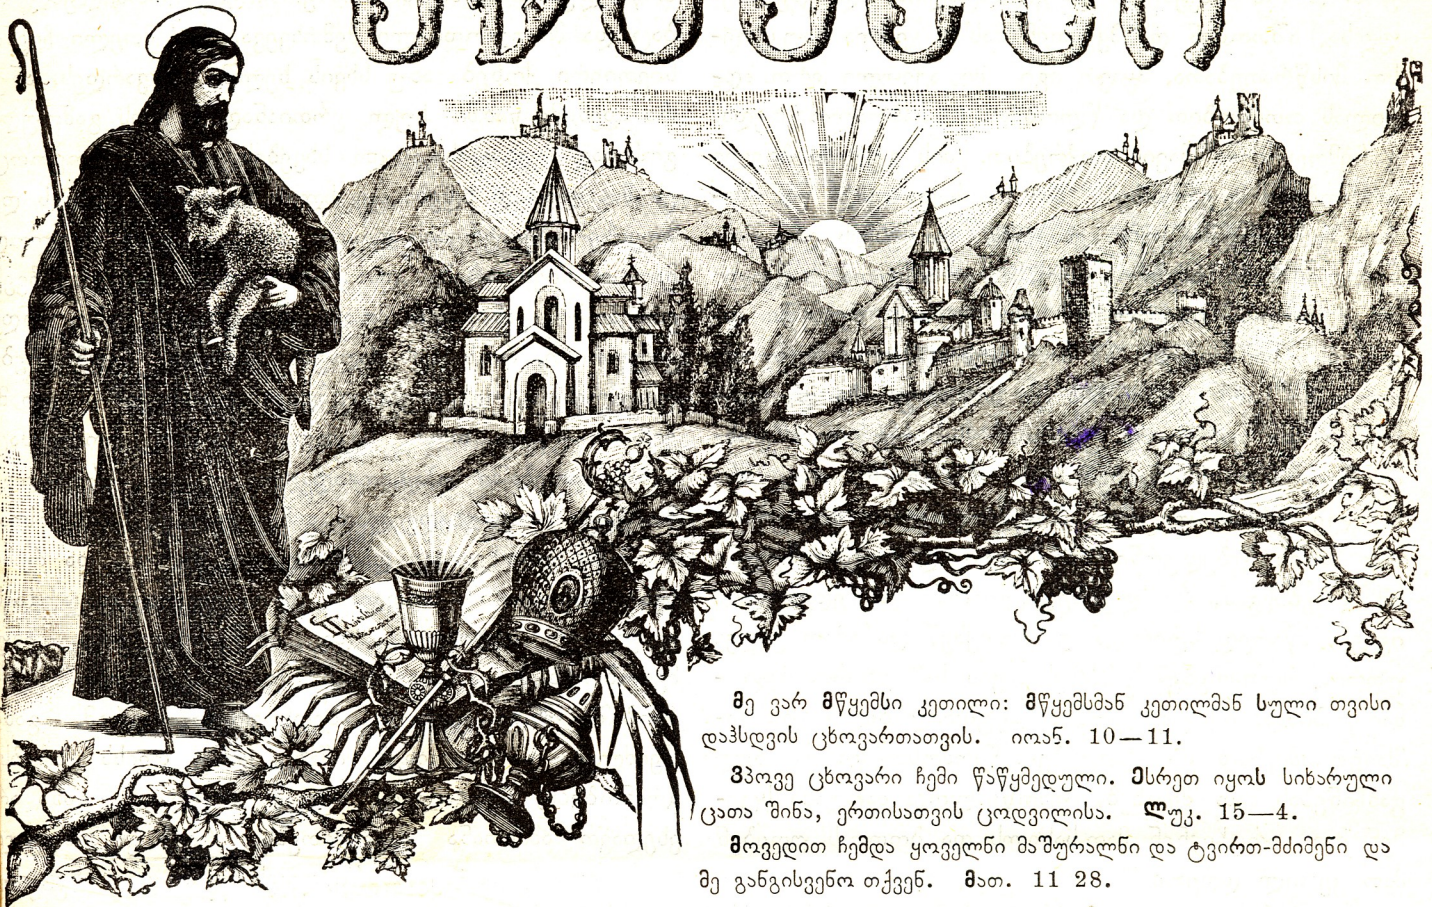 მე ვარ მწყემსი კეთილი: მწყემსმან კეთილმან სული თვისი
დაჰსდვის ცხოვართათვის. იოან. 10—11.
ვპოვე ცხოვარი ჩემი წაწყმედული. ესრეთ იყოს სიხარული
ცათა შინა, ერთისათვის ცოდვილისა. ლუკ. 15—4.
მოვედით ჩემდა ყოველნი მაშურალნი და ტვირთ-მძიმენი და
მე განგისვენო თქვენ. მათ. 11 28.